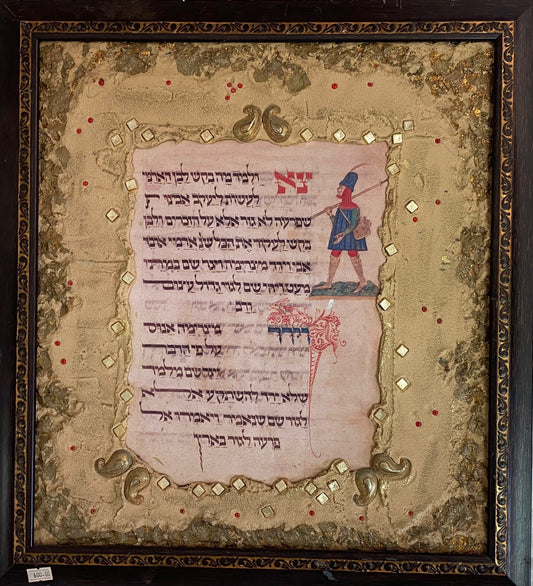 צא ולמד מה בקש לבן הארמי
לעשות ליעקב אבינו
שפרעה לא גזר אלא על הזכרים ולבן
בקש לעקור את הכל שנ׳ ארמי אובד
אבי וירד מצרימה ויגר שם במתי
מעט ויהי שם לגוי גדול עצום
ורב
וירד מצרימה אנוס
על פי הדבר
ויגר שם מלמד
שלא ירד להשתקע אלא
לגור שם שנאמר ויאמרו אל
פרעה לגור בארץ